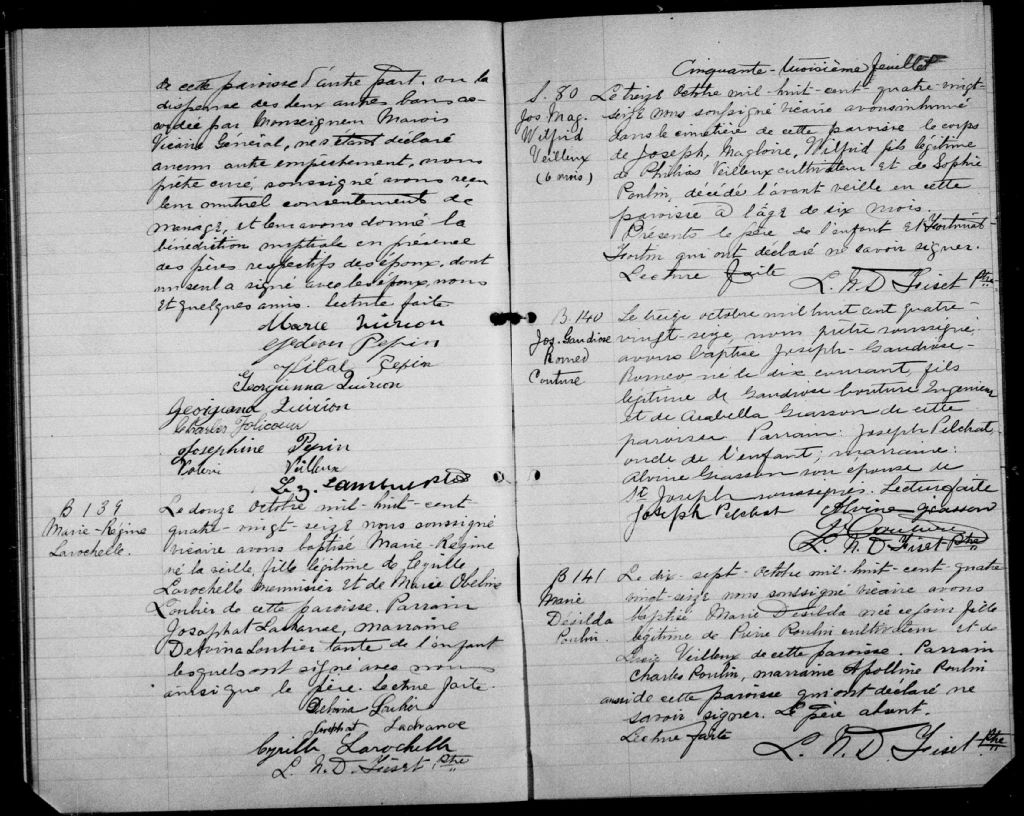 de cette paroisse d'autre part. vu la
dispense des deux autres bans ac-
cordée par Monseigneur Marois
Vicaire Général, ne s'étant déclaré
aucun autre empêchement, nous
prêtre curé, soussigné avons reçu
leur mutuel consentement de
mariage, et leur avons donné la
bénédiction nuptiale en présence
des pères respectifs des époux, dont
un seul a signé avec les époux, nous
et quelques amis. lecture faite
Marie Quirion
Gédéon Pepin
Vital Pepin
Georgianna Quirion
Georgiana Quirion
Charles Folicoeur
Josephine Pepin
Valerie Veilleux
Lambert Ptre
B 139
Marie-Régine
Larochelle.
Le douze Octobre mil-huit-cent-
quatre-vingt-seize nous soussigné
vicaire avons baptisé Marie-Régine
né la veille, fille légitime de Cyrille
Larochelle menuisier et de Marie Obeline
Loubier de cette paroisse. Parrain
Josaphat Lafrance, marraine
Delvina Loubier tante de l'enfant
lesquels ont signé avec nous
ainsi que le père. Lecture faite.
Delvina Loubier
Josaphat Lafrance
Cyrille Larochelle
L. N. D. Fiset Ptre
Cinquante-troisième feuillet
S. 80
Jos Mag.
Wilfrid
Veilleux
(6 mois)
Le treize Octobre mil-huit-cent-quatre-vingt-
seize nous soussigné vicaire avons inhumé
dans le cimetière de cette paroisse le corps
de Joseph, Magloire, Wilfrid fils légitime
de Philias Veilleux cultivateur et de Sophie
Poulin, décédé l'avant veille en cette
paroisse à l'âge de six mois.
Présents le père de l'enfant et Fortunat
Fortin qui ont déclaré ne savoir signer.
Lecture faite
L. N. D Fiset Ptre
B. 140
Jos. Gaudiose
Romeo
Couture
Le treize octobre mil huit cent quatre-
vingt-seize, nous, prêtre soussigné,
avons baptisé Joseph-Gaudiose-
Romeo né le dix courant, fils
légitime de Gaudiose Couture Ingenieur
et de Arabella Giasson de cette
paroisse Parrain: Joseph Pelchat
oncle de l'enfant; marraine:
Alvine Giasson son épouse de
St Joseph soussignés. Lecture faite
Joseph Pelchat Alvine Giasson
G. Couture
L. N. D. Fiset Ptre
B 141
Marie
Désilda
Poulin
Le dix-sept-Octobre mil-huit-cent-quatre
vingt-seize nous soussigné vicaire avons
baptisé Marie Désilda née ce jour fille
légitime de Pierre Poulin cultivateur et de
Lucie Veilleux de cette paroisse. Parrain
Charles Poulin, marraine Apolline Poulin
aussi de cette paroisse qui ont déclaré ne
savoir signer. Le père absent.
Lecture faite
L. N. D. Fiset Ptre